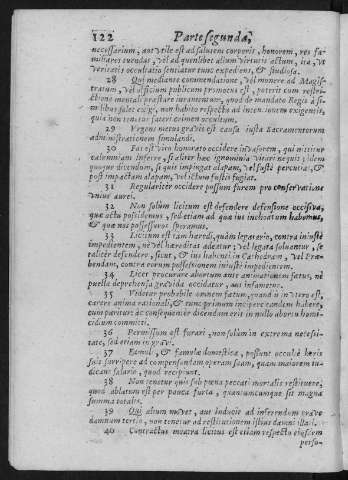 122 Parte segunda,
necessarium, aut vtile est ad salutem corporis, honorem, res fa-
miliares tuendas, vel ad quemlibet alium virtutis actum, ita, vt
veritatis occultatio sentiatur tunc expediens, & studiosa.
28 Qui mediante commendatione, vel munere ad Magis-
tratum, vel officium publicum promotus est, poterit cum restri-
ctione mentali præstare iuramentum, quod de mandato Regis à si-
milibus solet exigi, non habito respectu ad intentionem exigentis,
quia non tenetur fateri crimen occultum.
29 Vrgens metus gravis est causa iusta Sacramentorum
administrationem simulandi.
30 Fas est viro honorato occidere invasorem, qui nititur
calumniam inferre, si aliter hæc ignominia vitari nequit; idem
quoque dicendum, si quis impingat alapam, vel fuste percutiat, &
post impactam alapam, vel ictum fustis fugiat.
31 Regulariter occidere possum furem pro conservatione
vnius aurei.
32 Non solum licitum est defendere defensione occisiva,
quæ actu possidemus, sed etiam ad quæ ius inchoatum habemus,
& quæ nos possessuros speramus.
33 Licitum est tam hæredi, quàm legatario, contra iniustè
impedientem, nè vel hæreditas adeatur, vel legata solvantur, se
taliter defendere, sicut, & ius habenti in Cathedram, vel Præben-
dam, contra eorum possessionem iniustè impedientem.
34 Licet procurare abortum ante animationem fœtus, nè
puella deprehensa gravida occidatur, aut infametur.
35 Videtur probabile omnem fœtum, quandiu in vtero est,
carere anima rationali, & tunc primum incipere eandem habere,
cum paritur: ac consequenter dicendum erit in nullo abortu homi-
cidium committi.
36 Permissum est furari, non solùm in extrema necesi-
tate, sed etiam in gravi.
37 Famuli, & famulæ domesticæ, possunt occultè heris
suis surripere ad compensandam operam suam, quam maiorem iu-
dicant salario, quod recipiunt.
38 Non tenetur quis sub pœna peccati mortalis restituere,
quod ablatum est per pauca furta, quantumcunque sit magna
summa totalis.
39 Qui alium movet, aut inducit ad inferendum grave
damnum tertio, non tenetur ad restitutionem istius damni illati.
40 Contractus mohatra licitus est etiam respectu eiusdem
perso-